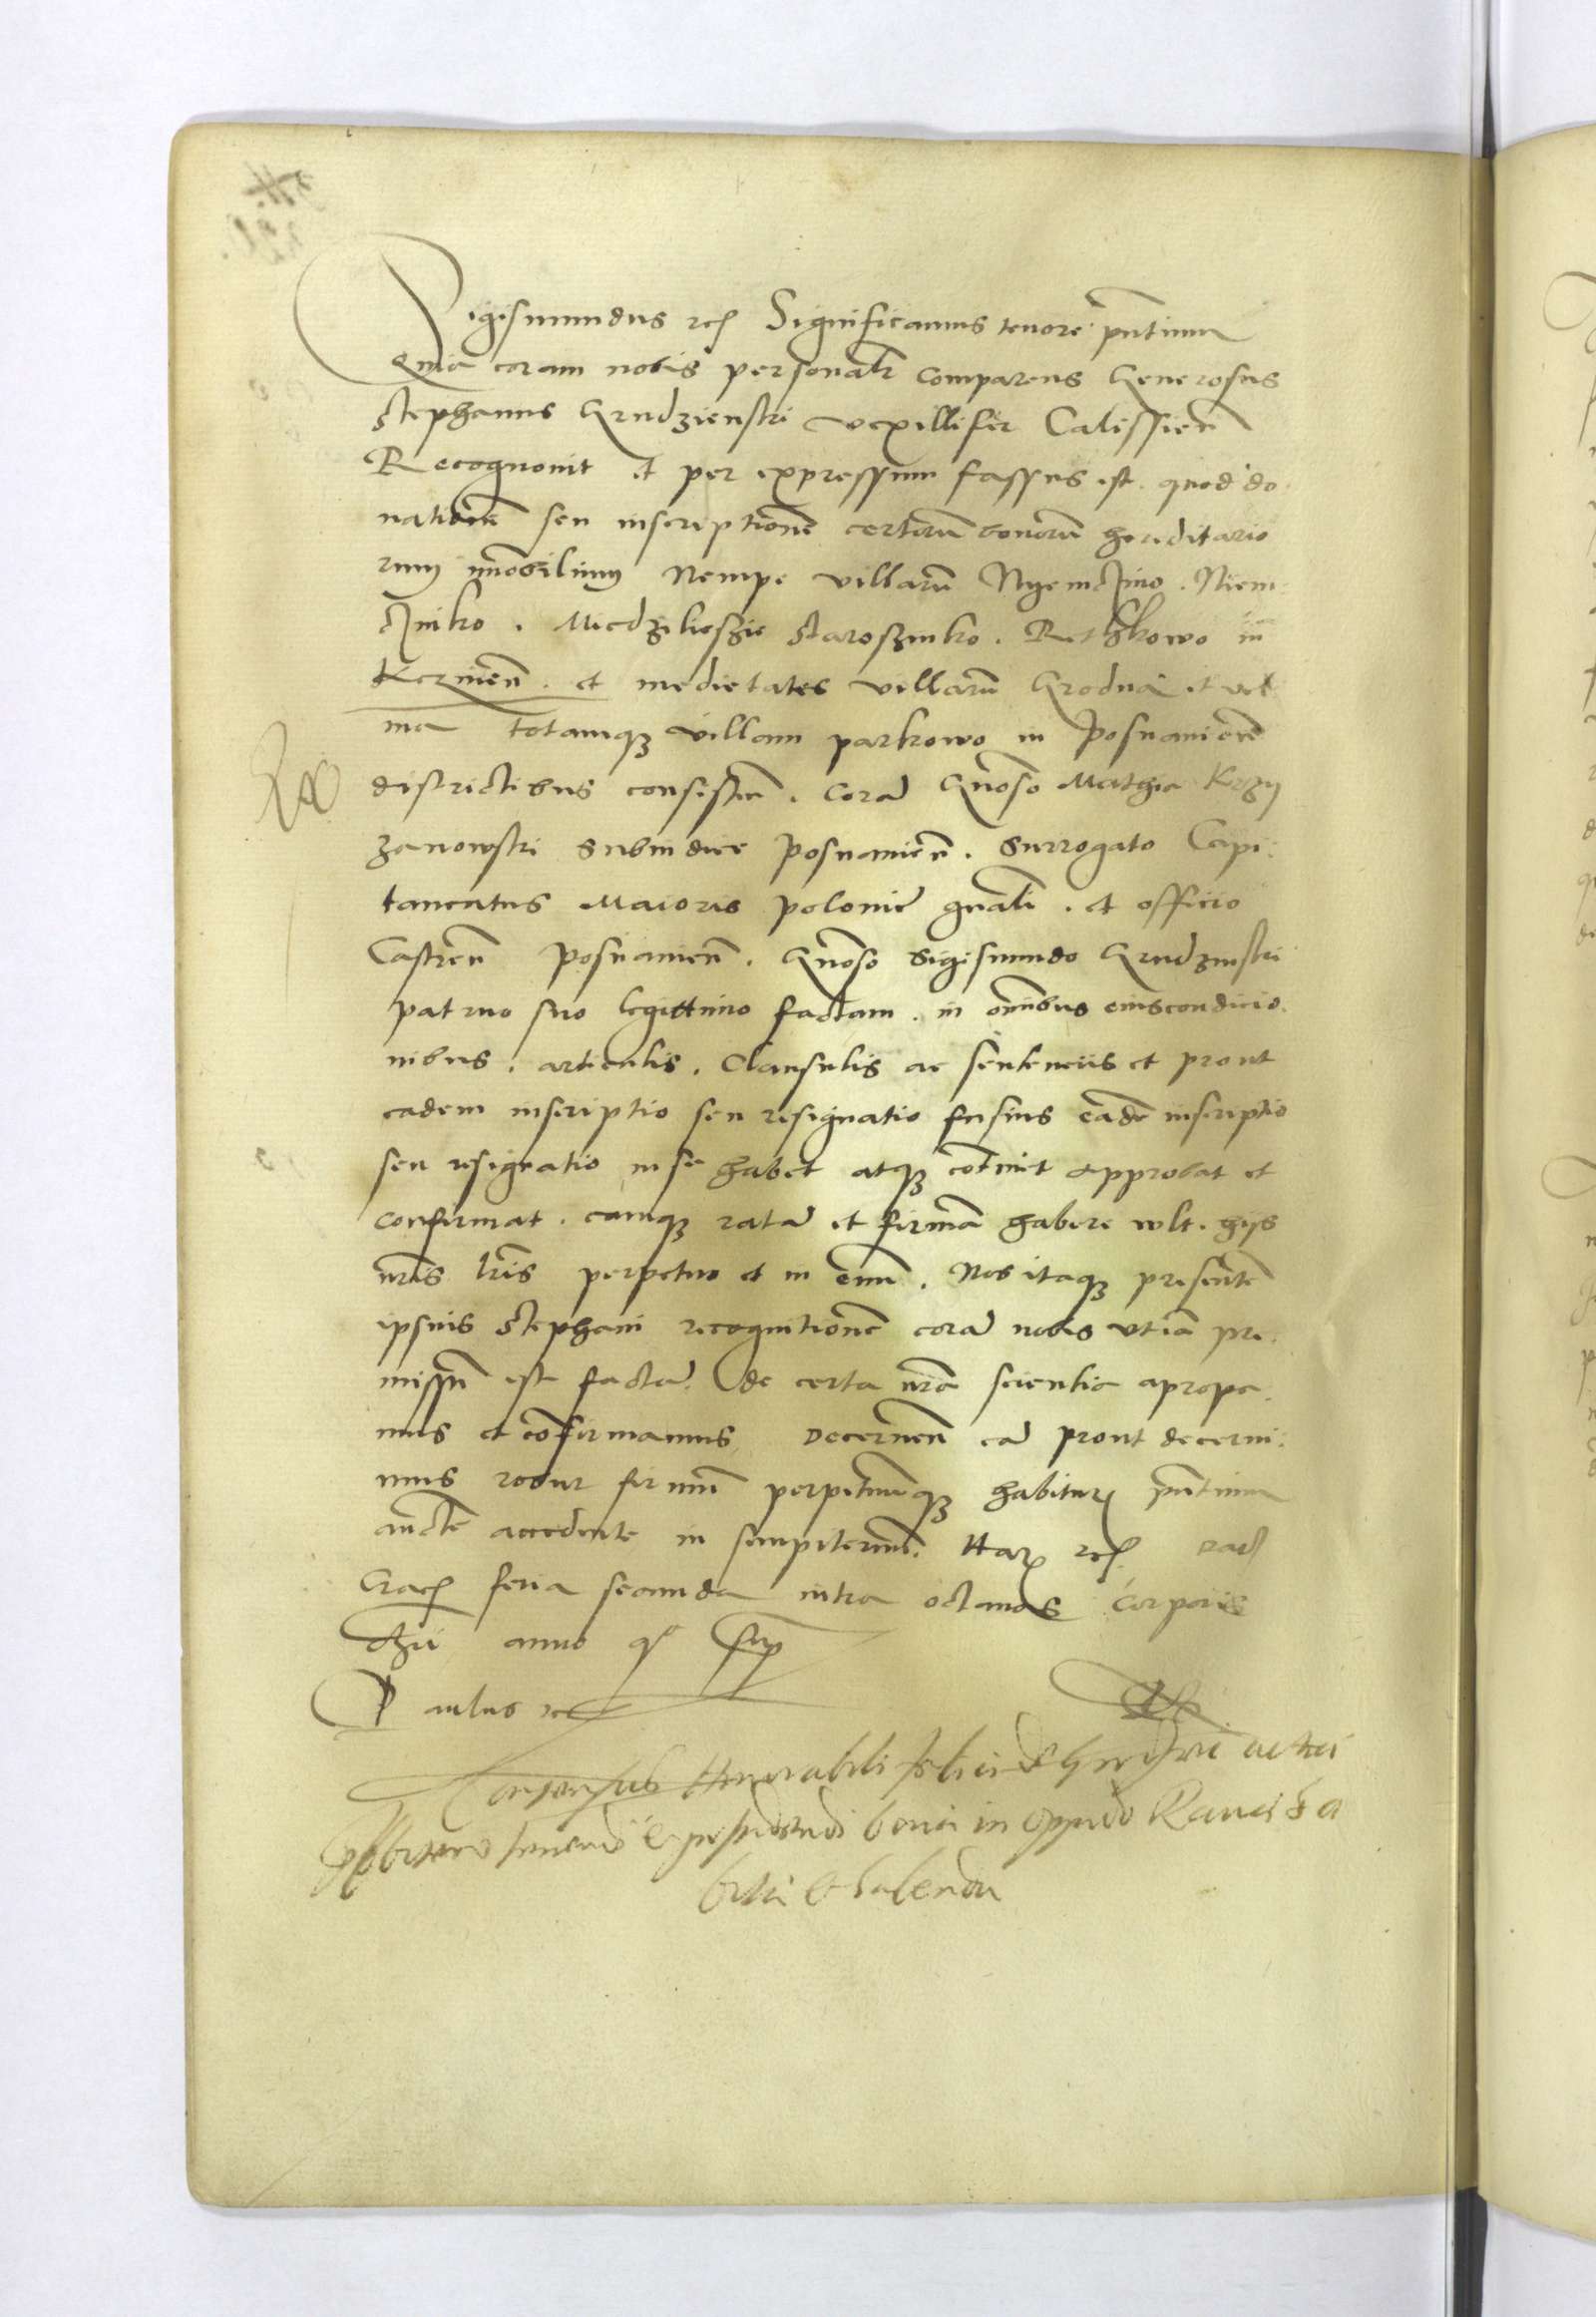 Sigismundus rex Significamus tenore pñtium
Quia coram nobis personalr comparens Generosus
Stephanus Grudzienski vexillifer Calissieñ
Recognouit et per expressum fassus est. quod do
nationẽ seu inscriptionẽ certorũ bonorũ hereditario
rum im̃obilium Nempe villarũ Nyemczino. Niem
czinko. Miedzilieszie Staroszinko. Rethkowo in
Kczinieñ. et medietates villarũ Grodna et
ma totamqz villam parkowo in Posnanieñ
districtibus consisteñ. Corã Gñoso Mathia Krzy
zanowski Subiudice Posnanieñ. Surrogato Capi:
taneatus Maioris Polonie gñali. et officio
Castreñ Posnanieñ. Gñoso Sigismundo Grudzinski
patruo suo legittimo factam. in om̃ibus eius condicio.
nibus. articulis. Clausulis ac sentenciis et prout
eadem inscriptio seu resignatio fusius eadẽ inscriptio
seu resignatio in se habet atqz cõtinet approbat et
confirmat. eamqz ratã et firmã habere wlt. hijs
nr̃is lr̃is perpetuo et in euũ. Nos itaqz presentẽ
ipsius Stephani recognitionẽ corã nobis vtiã pre.
missũ est factã. de certa nr̃a scientia apropa.
mus et cõfirmamus Decerneñ eã prout decerni:
mus robur firmũ perpetuũqz habiturã pñtium
aucte accedente in sempiternũ. Harũ rex Dat
Crac feria secunda intra octauas Corporis
Chri anno qº supra
Paulus
Consensus Honorabili
in Oppido Raua
et habenda